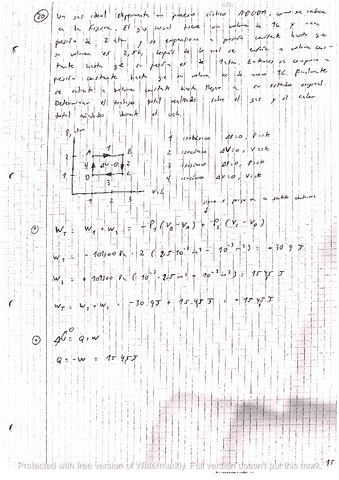 20 Un gas ideal experimenta un proceso cíclico ABCDA, como se indica
en la figura. El gas inicial tiene un volumen de 1L y una
presión de 2 atm, y se expansiona a presión constante hasta que
su volumen es 2,5L, después de lo cual se enfría a volumen cons-
tante hasta que su presión es de 1 atm. Entonces se comprime a
presión constante hasta que su volumen es de nuevo 1L. Finalmente
se calienta a volumen constante hasta llegar a su estado original.
Determinar el trabajo total realizado sobre el gas y el calor
total añadido durante el ciclo.
P, atm
2 A 1 B
4 ΔU=0 2
1 D 3 C
1 2 3 V, L
1 isobárico ΔP=0, P=cte
2 isocórico ΔV=0, V=cte
3 ΔP=0, P=cte
4 isocórico ΔV=0, V=cte
W_T = W_1 + W_3 = -P_1(V_B-V_A) + P_3(V_C-V_D)
W_1 = -101300 Pa · 2 (2.5·10^-3 m^3 - 10^-3 m^3) = -30 9 J
W_3 = +101300 Pa (10^-3·2.5 m^3 - 10^-3 m^3) = 15 45 J
W_T = W_1 + W_3 = -30.9J + 15.45J = -15 45J
ΔU^0 = Q + W
Q = -W = 15 45J
Protected with free version of Watermarkly. Full version doesn't put this mark.
15